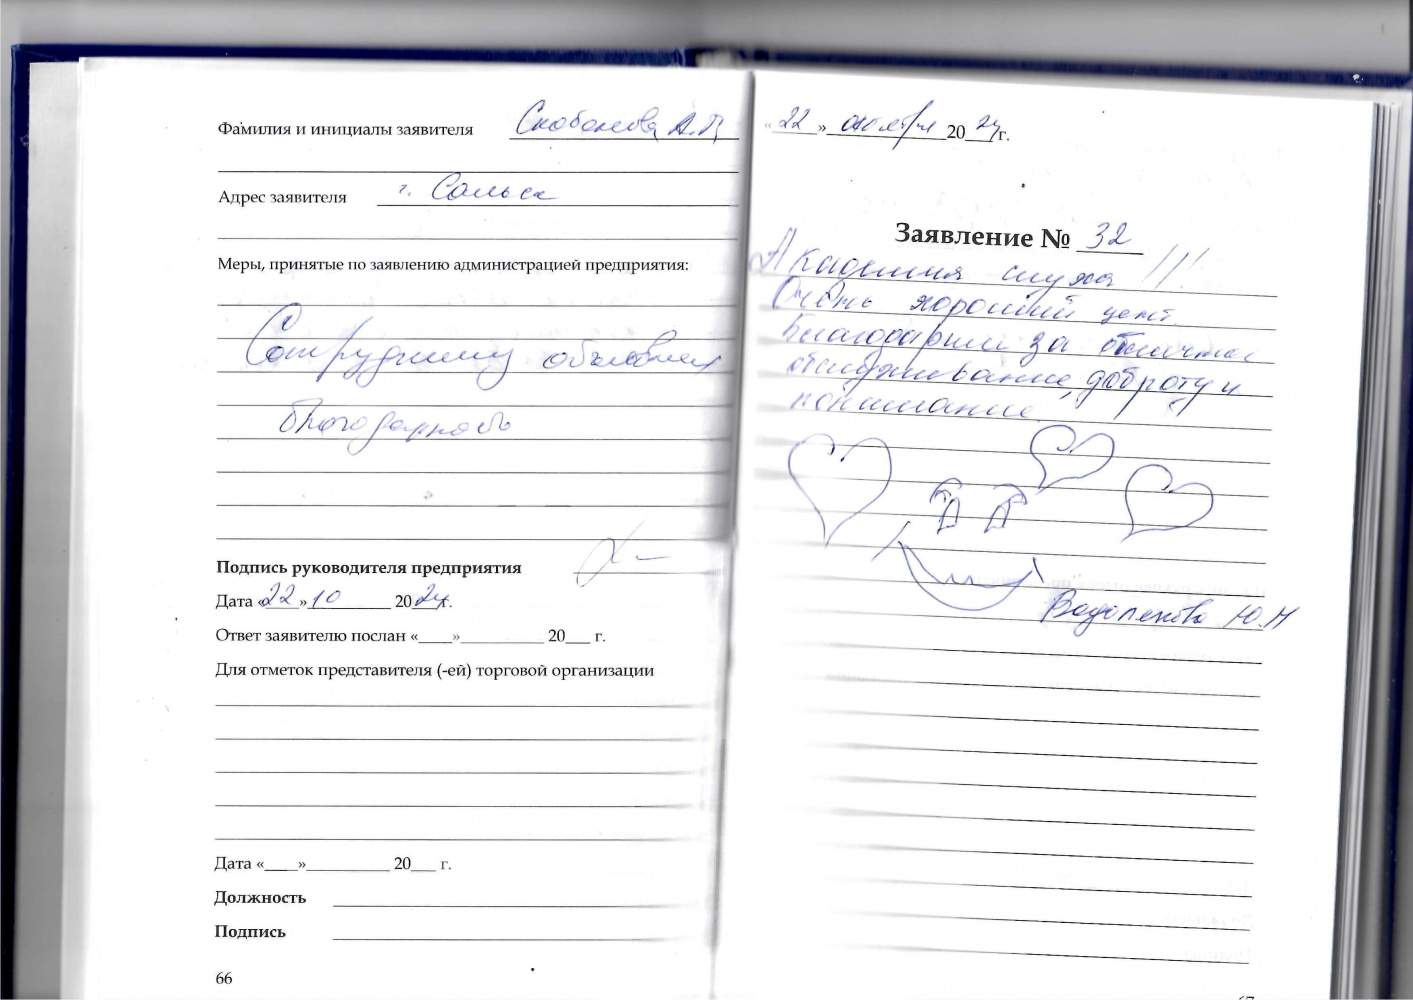 Фамилия и инициалы заявителя Скобонева А.П
Адрес заявителя г. Сальск
Меры, принятые по заявлению администрацией предприятия:
Сотруднику объявлена
благодарность
Подпись руководителя предприятия
Дата «22» 10 2024г.
Ответ заявителю послан «____»__________ 20___ г.
Для отметок представителя (-ей) торговой организации
Дата «____»__________ 20___ г.
Должность
Подпись
66
«22» октября 2024г.
Заявление № 32
Академия слуха !!!
Очень хороший цент.
Благодарим за отличное
обслуживание, доброту и
понимание
Ю.Н